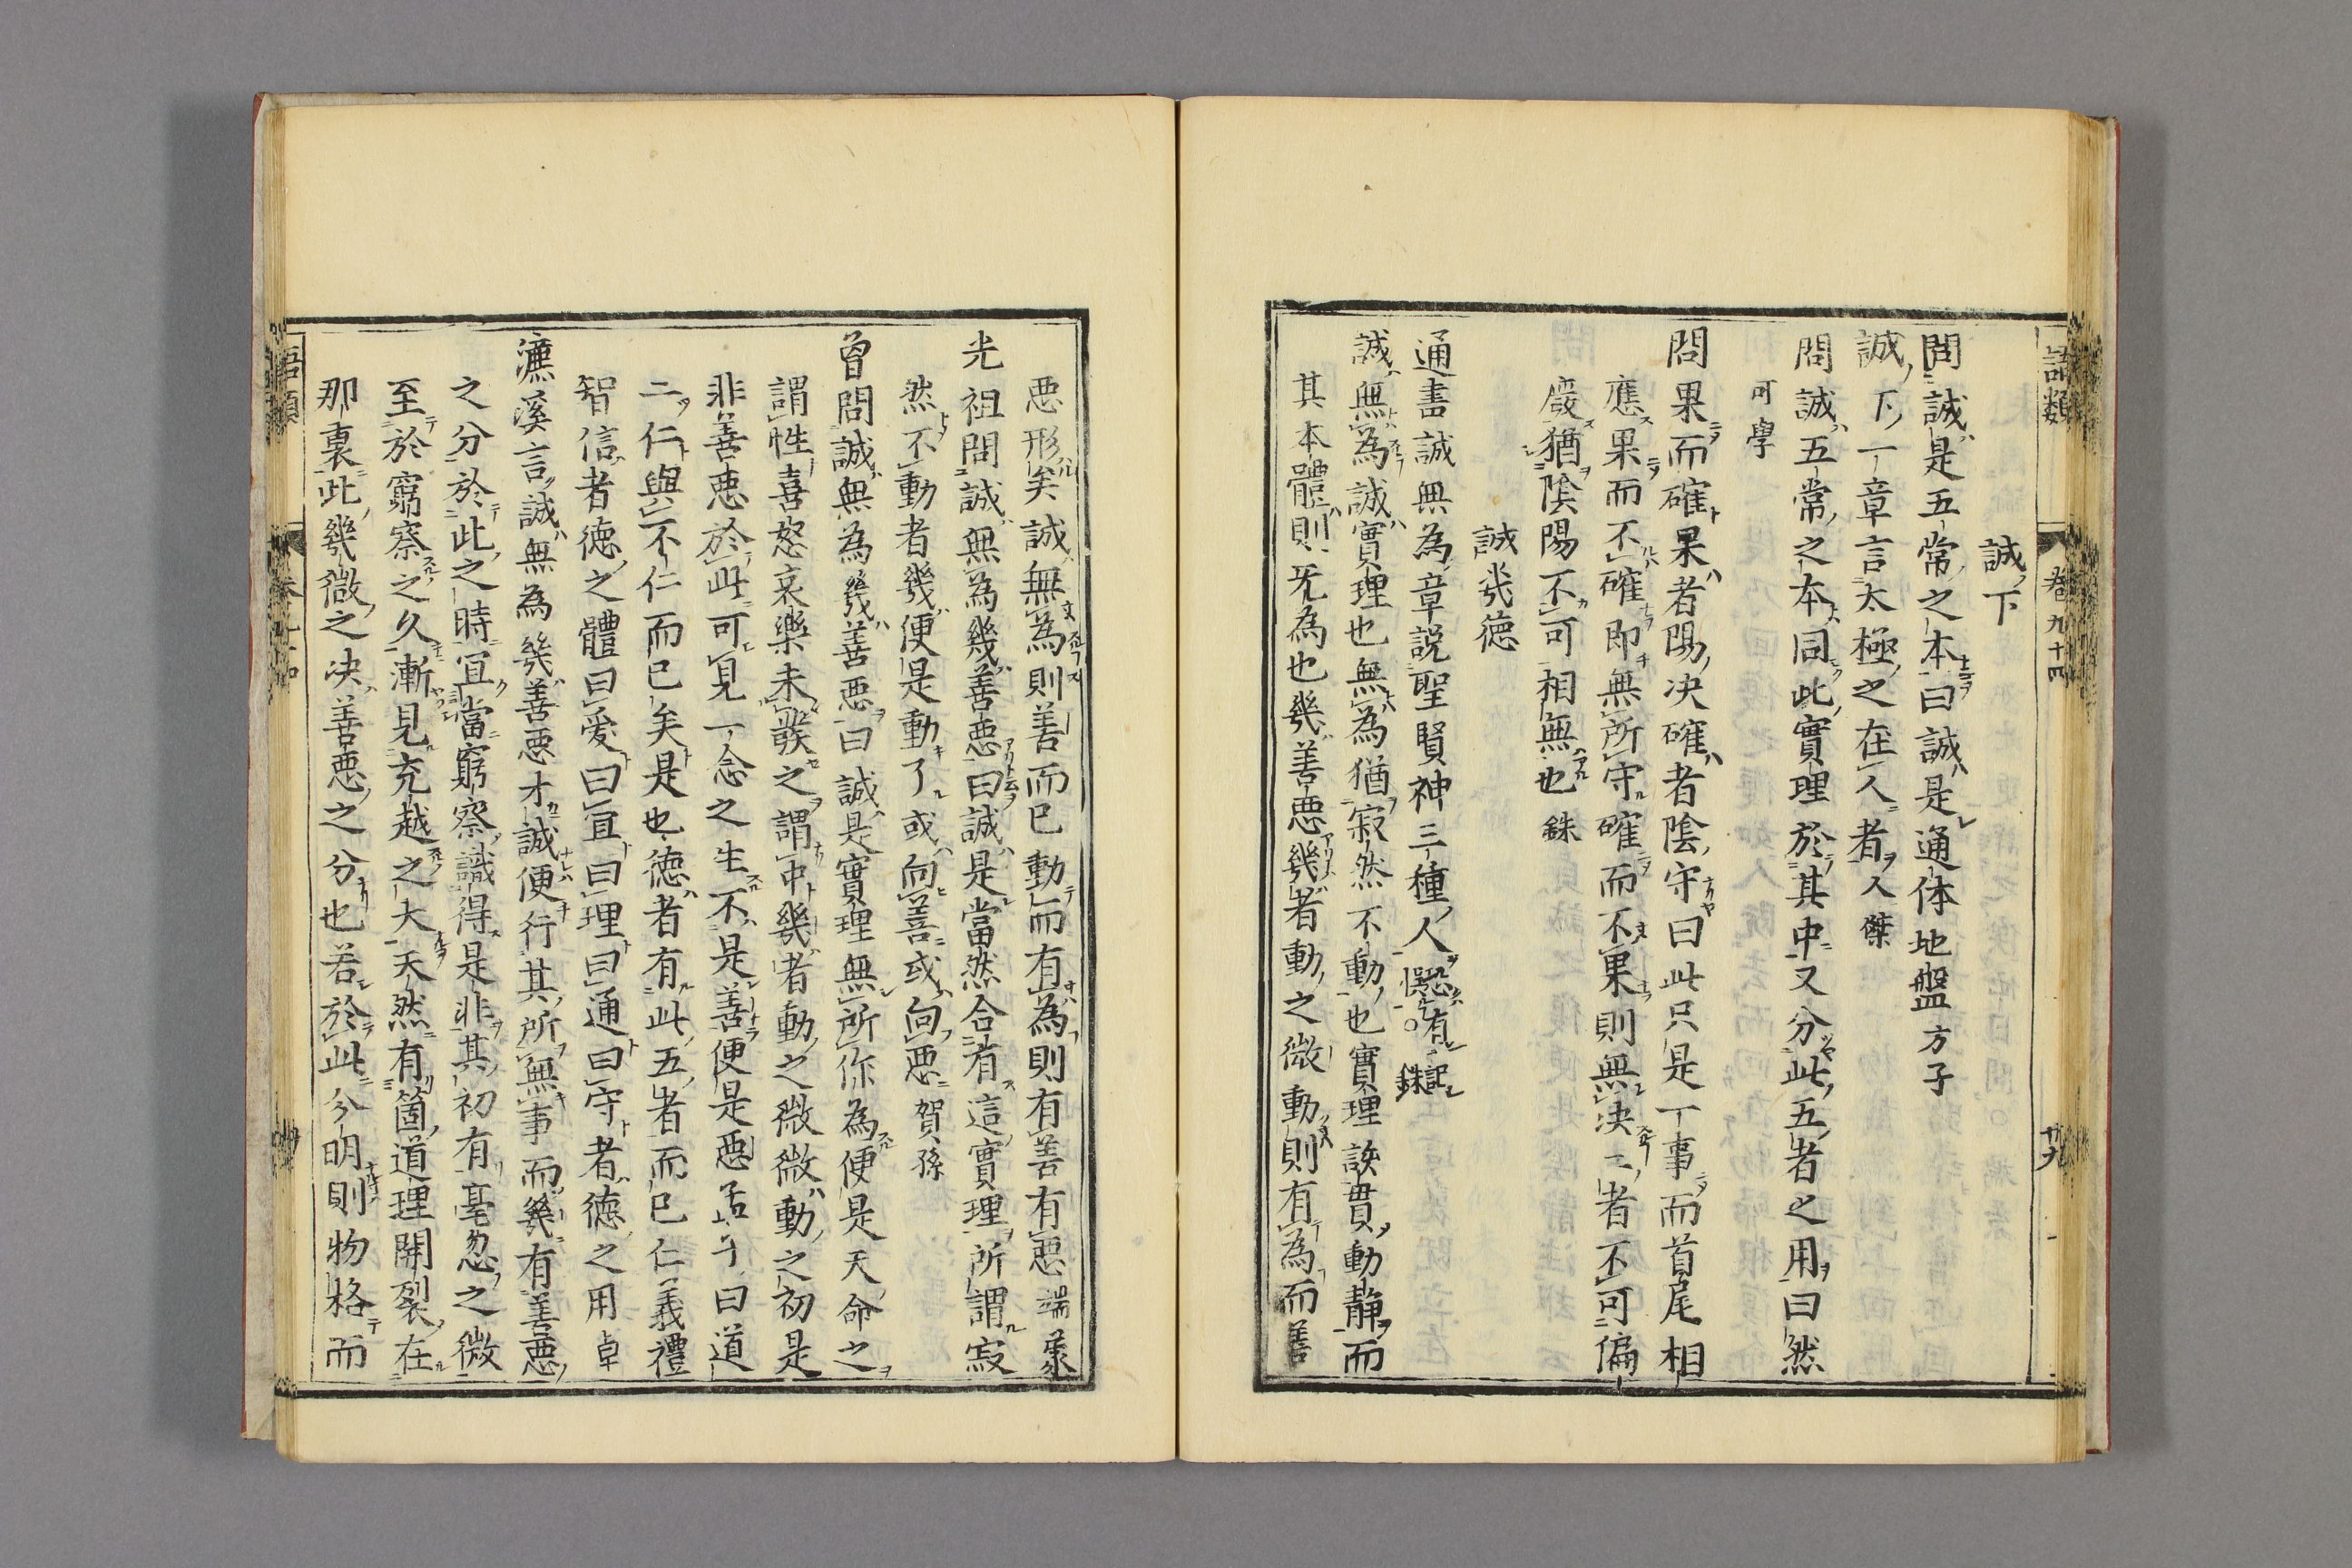 語類 卷九十四 廿九
誠下
問誠是五常之本曰誠是通体地盤方子
誠下一章言太極之在人者人傑
問誠五常之本同此實理於其中又分此五者之用曰然
可學
問果而確果者陽决確者陰守曰此只是一事而首尾相
應果而不確即無所守確而不果則無决二者不可偏
廢猶陰陽不可相無也銖
誠幾德
通書誠無為章説聖賢神三種人恐有記悞○銖
誠無為誠實理也無為猶寂然不動也實理該貫動静而
其本體則旡為也幾善惡幾者動之微動則有為而善
惡形矣誠無為則善而已動而有為則有善有惡端蒙
光祖問誠無為幾善惡曰誠是當然合有這實理所謂寂
然不動者幾便是動了或向善或向惡賀孫
曾問誠無為幾善惡曰誠是實理無所作為便是天命之
謂性喜怒哀樂未發之謂中幾者動之微微動之初是
非善惡於此可見一念之生不是善便是惡孟子曰道
二仁與不仁而已矣是也德者有此五者而已仁義禮
智信者德之體曰愛曰宜曰理曰通曰守者德之用卓
濂溪言誠無為幾善惡才誠便行其所無事而幾有善惡
之分於此之時宜當窮察識得是非其初有毫忽之微
至於窮察之久漸見充越之大天然有箇道理開裂在
那裏此幾微之决善惡之分也若於此分明則物格而
語類